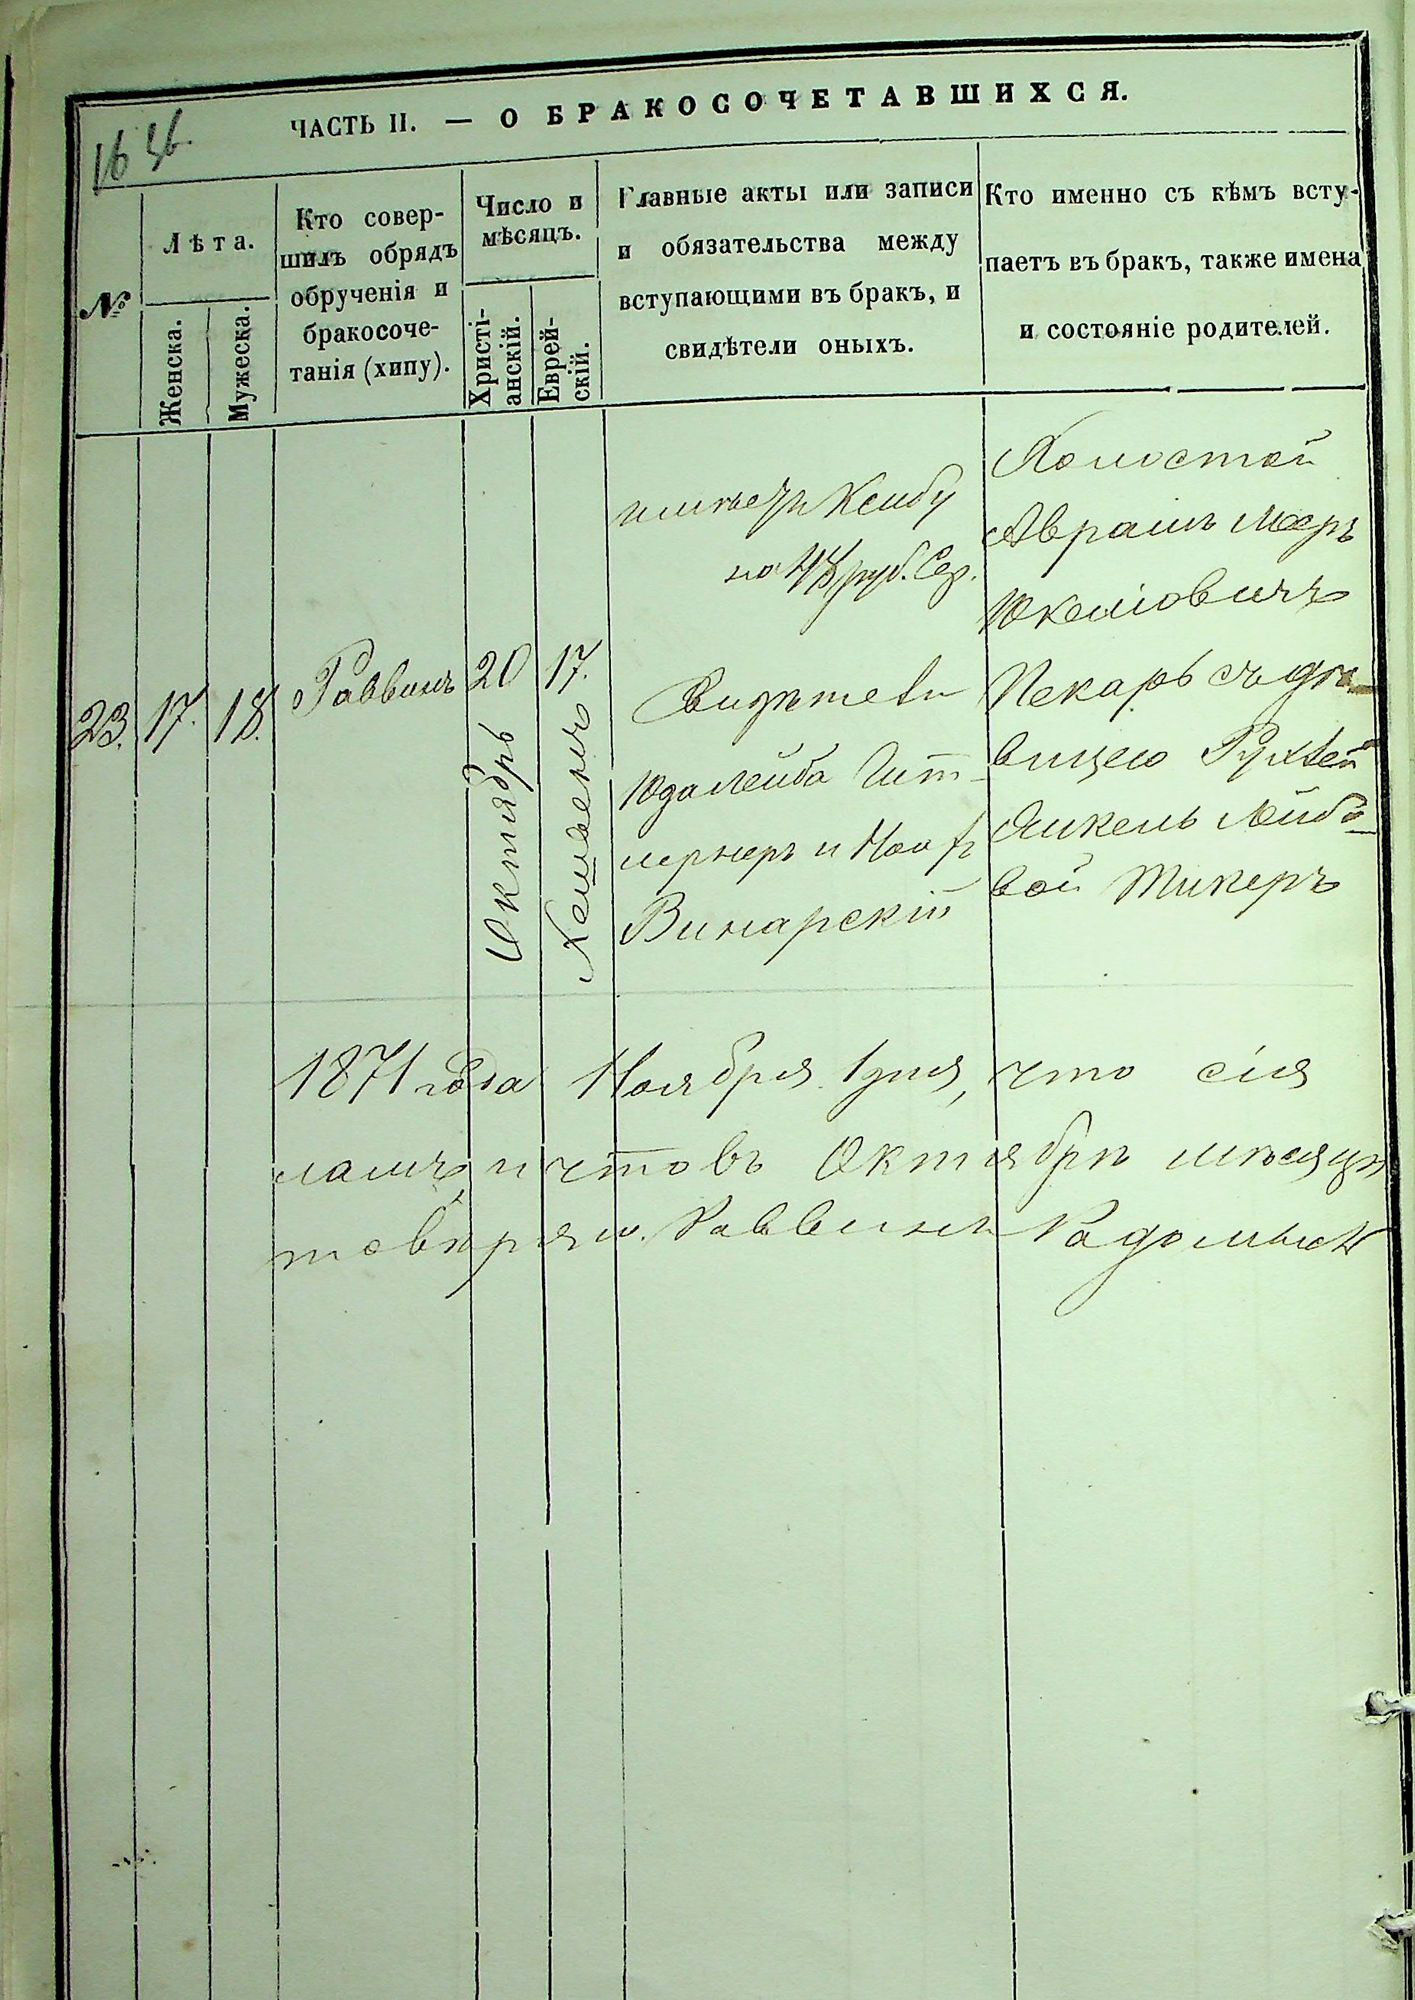 ЧАСТЬ II. — О БРАКОСОЧЕТАВШИХСЯ.
№
Лѣта.
Женска.
Мужеска.
Кто совер-
шилъ обрядъ
обрученія и
бракосоче-
танія (хипу).
Число и
мѣсяцъ.
Христі-
анскій.
Еврей-
скій.
Главные акты или записи
и обязательства между
вступающими въ бракъ, и
свидѣтели оныхъ.
Кто именно съ кѣмъ всту-
паетъ въ бракъ, также имена
и состояніе родителей.
23.
17.
18.
Раввинъ
20
Октябрь
17.
Хешвенъ
на 48 руб. Сер.
Свидѣтели
Юдалейба
и
Винарскій
Холостой
Аврамъ Меръ
Пекарь съ дѣ-
вицею Рухлей
Янкель Лейбо-
вой
1871 года Ноября 1 дня, что сія
и что въ Октябрѣ мѣсяцѣ
Раввинъ